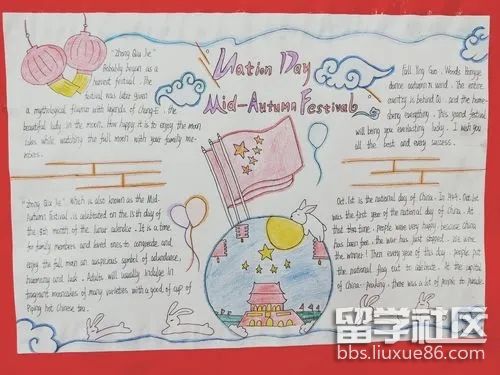 Nation Day
Mid-Autumn Festival
"Zhong Qiu Jie"
Probably began as a
harvest festival. The
festival was later given
a mythological flavour with legends of Chang-E, the
beautiful lady in the moon. How happy it is to enjoy the moon
cake while watching the full moon with your family me-
mbers.
Full Ying Guo. Woods
dome autumn wind. The entire
and the home-
everything. This grand festival
will bring you everlasting lucky. I wish you
all the best and every success.
"Zhong Qiu Jie", which is also known as the Mid-
Autumn Festival, is celebrated on the 15th day of
the 8th month of the lunar calendar. It is a time
for family members and loved ones to congregate and
enjoy the full moon an auspicious symbol of abundance,
harmony and luck. Adults will usually indulge in
fragrant mooncakes of many varieties with a good cup of
Piping hot Chinese tea.
Oct. 1st is the national day of China. In 1949, Oct. 1st
was the first year of the national day of China. At
that time, people were very happy, because China
has been free, the war has just stopped. We were
the winner! Then every year of this day, people put
the national flag out to celebrate. At the capital
of China-peaking, there was a lot of people in parade.
留学社区
bbs.liuxue86.com